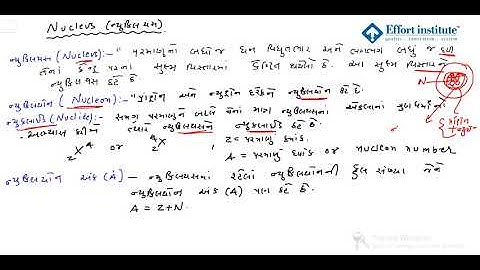 Nucleus (ન્યુક્લિયસ)
Effort institute
ન્યુક્લિયસ (Nucleus):- "પરમાણુનો બધો જ ધન વિદ્યુતભાર અને લગભગ બધું જ દળ
તેનાં કેન્દ્ર પરના સૂક્ષ્મ વિસ્તારમાં કેન્દ્રિત થયેલો છે. આ સૂક્ષ્મ વિસ્તારને
ન્યુક્લિયસ કહે છે.
N
ન્યુક્લિયોન (Nucleon):- "પ્રોટોન અને ન્યુટ્રોન દરેકને ન્યુક્લિયોન કહે છે.
ન્યુક્લાઈડ (Nuclide):- સમગ્ર પરમાણુને બદલે માત્ર ન્યુક્લિયસના
અભ્યાસ ન્યુક્લિયસને ન્યુક્લાઈડ કહે છે.
પ્રોટોન
zXA or AzX, Z = પરમાણુ ક્રમાંક
A = પરમાણુ or nucleon number
ન્યુક્લિયોન અંક (A) - ન્યુક્લિયસમાં રહેલાં ન્યુક્લિયોનની કુલ સંખ્યા તેને
ન્યુક્લિયોન અંક (A) પણ કહે છે.
A = Z+N.